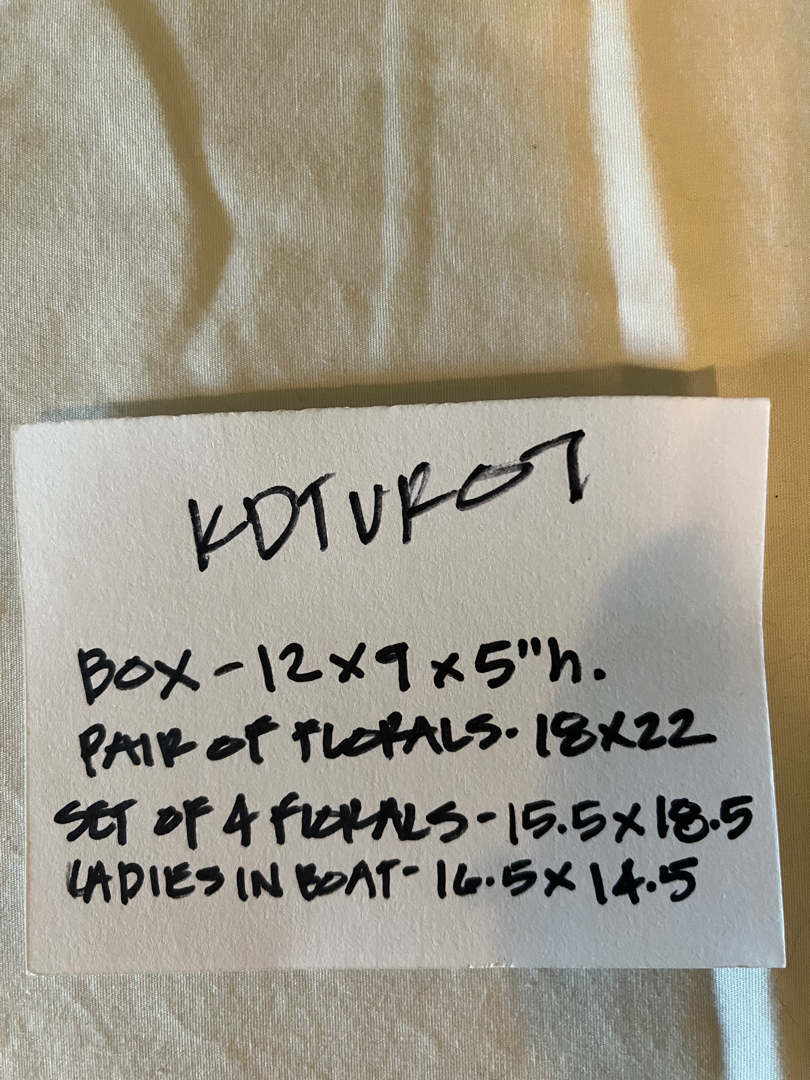 KDTUROT
BOX - 12 X 9 X 5"h.
PAIR OF FLORALS. 18X22
SET OF 4 FLORALS - 15.5 X 18.5
LADIES IN BOAT - 16.5 X 14.5